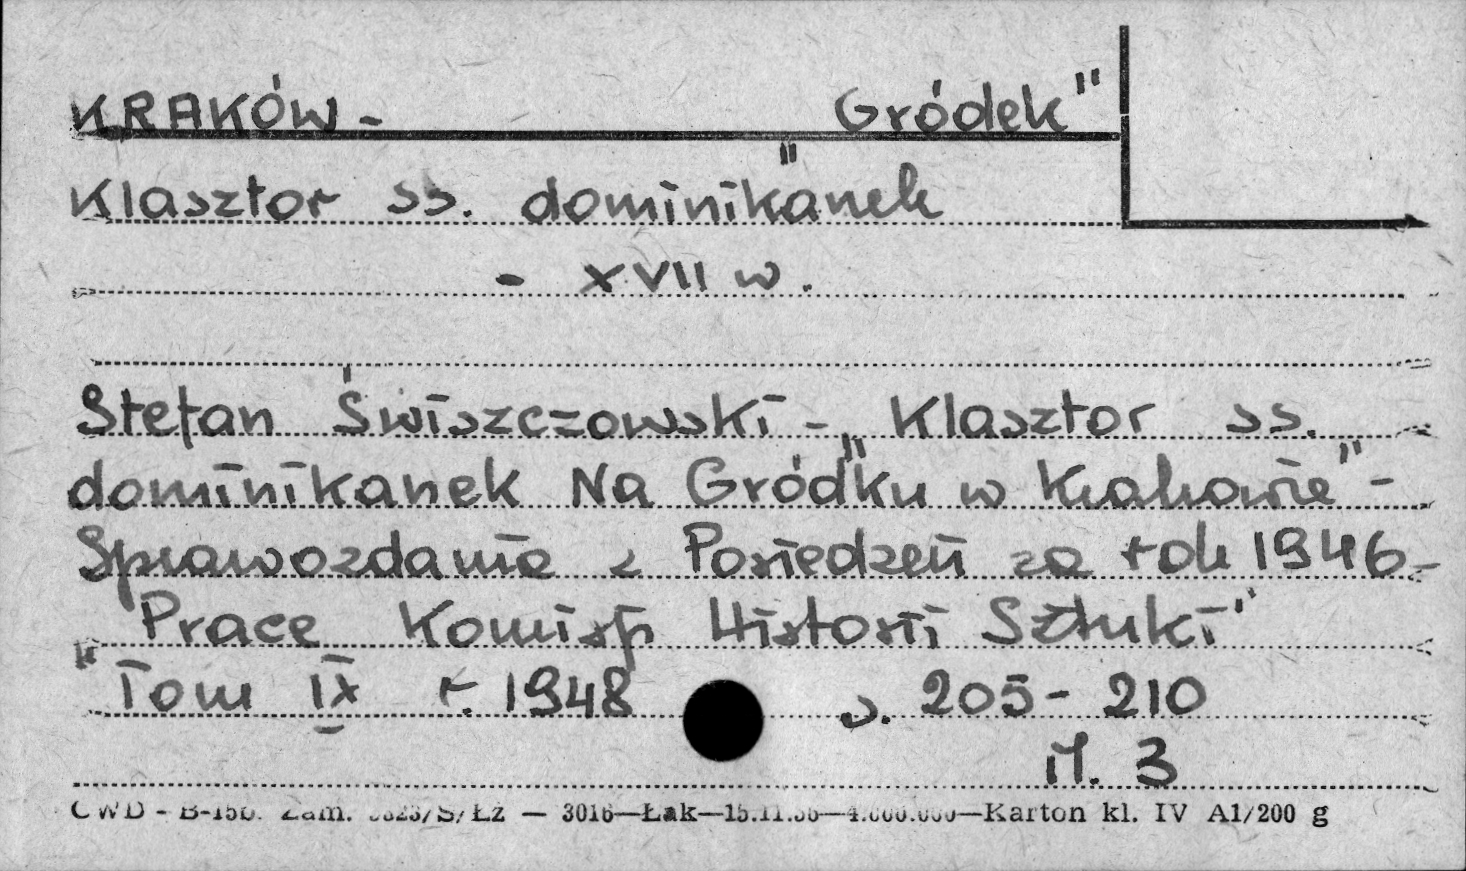 KRAKÓW - „Gródek"
Klasztor ss. dominikanek
- XVII w.
Stefan Świszczowski - „Klasztor ss.
dominikanek Na Gródku w Krakowie" -
Sprawozdania z Posiedzeń za rok 1946 -
„Prace Komisji Historii Sztuki"
Tom IX r. 1948 s. 205 - 210
il. 3
CWD - B-150. Zam. /S/Łż — 3016—Łak—15.11.56—4.000.000—Karton kl. IV A1/200 g